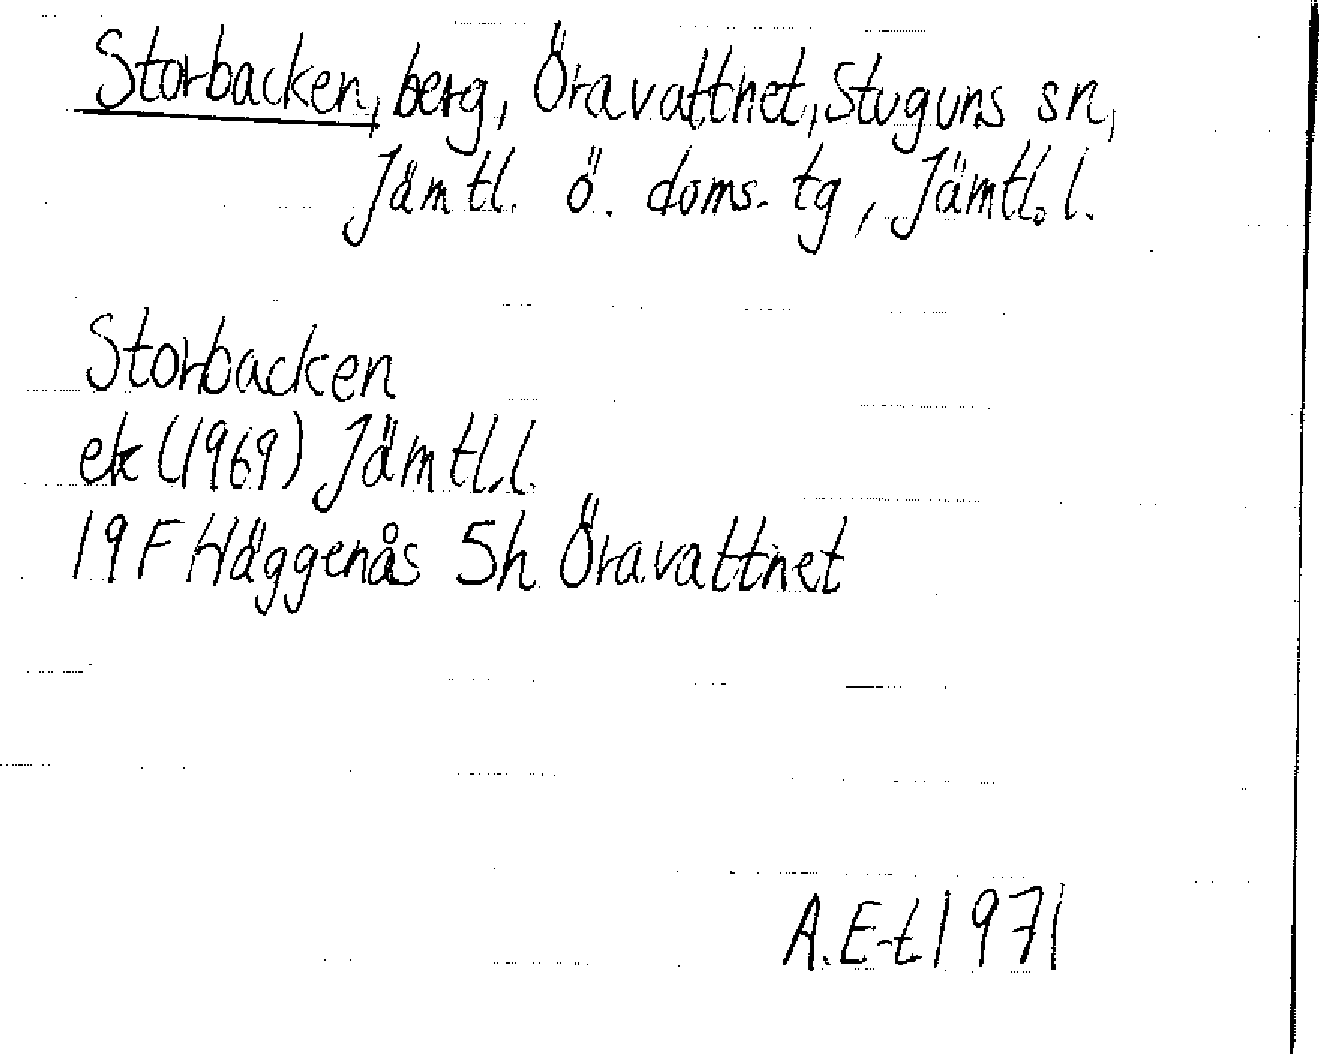 Storbacken, berg, Öravattnet, Stuguns sn,
Jämtl. ö. doms. tg, Jämtl. l.
Storbacken
ek (1969) Jämtl. l.
19 F Häggenås 5h Öravattnet
A. E-t 1971